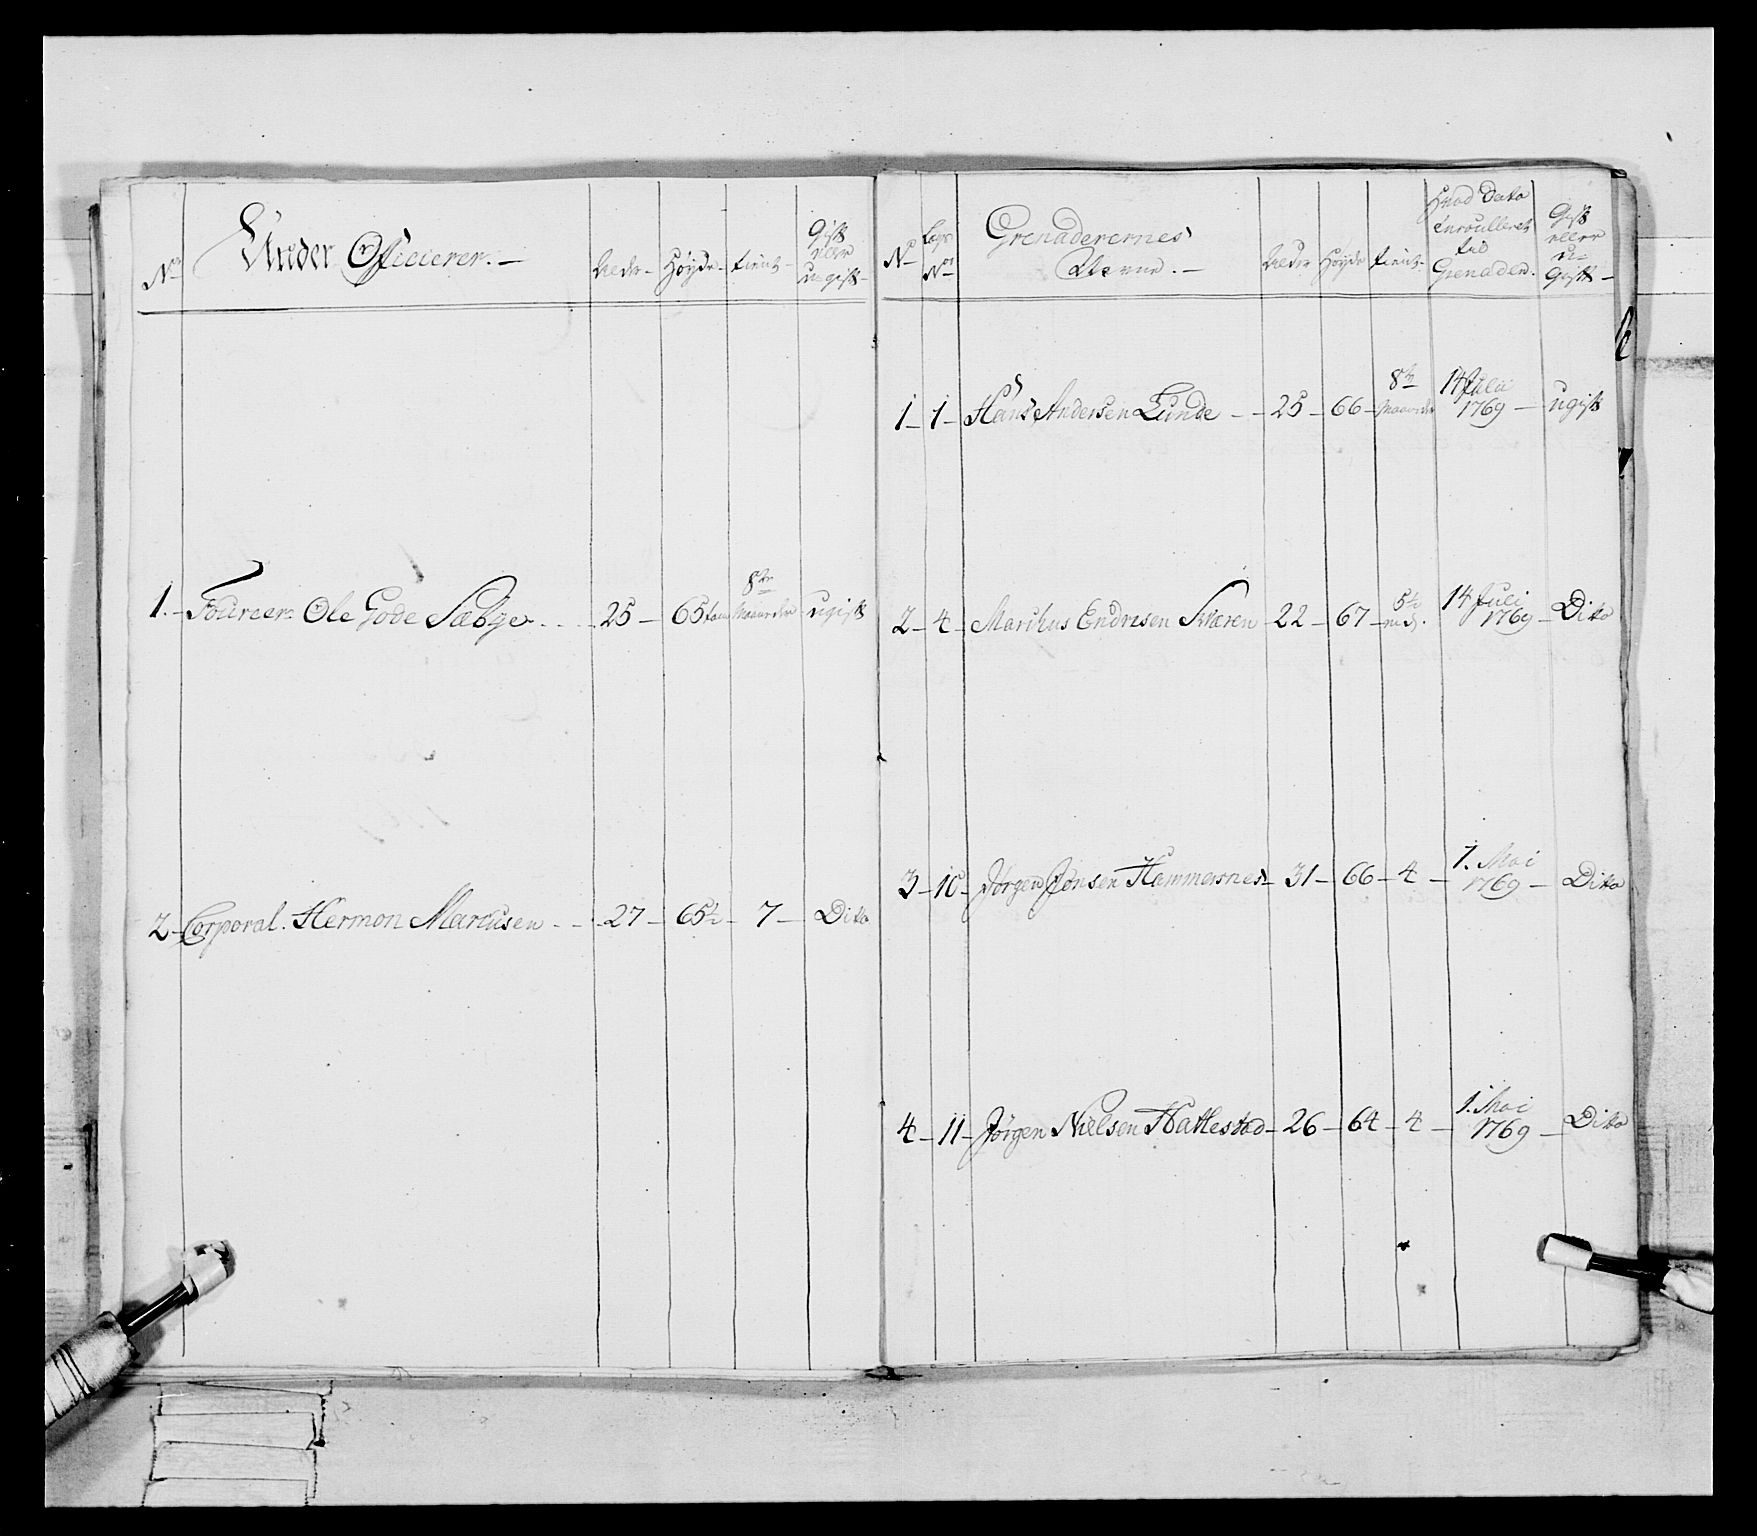 No Under Officierer. — Alder Høyde tient Gift eller ugift
1. Foureer Ole Gode Sæbye 25 65 8te Maaneder ugift
2 Corporal. Hermon Marcusen 27 65½ 7 Dito
No Nos Grenaderernes Nafne. — Alder Høyde tient Hvad Dato Enroulleret til Grenader. Gift eller u= Gift
1 1 Hans Andersen Lunde 25 66 8te Maaneder 14 Julii 1769 ugift
2 4 Marchus Endresen Kværen 22 67 5½ 14 Juli 1769 Dito
3 10 Jørgen Jensen Hammesnes 31 66 4 1. Mai 1769 Dito
4 11 Jørgen Nielsen Hattestad 26 64 4 1. Mai 1769 Dito